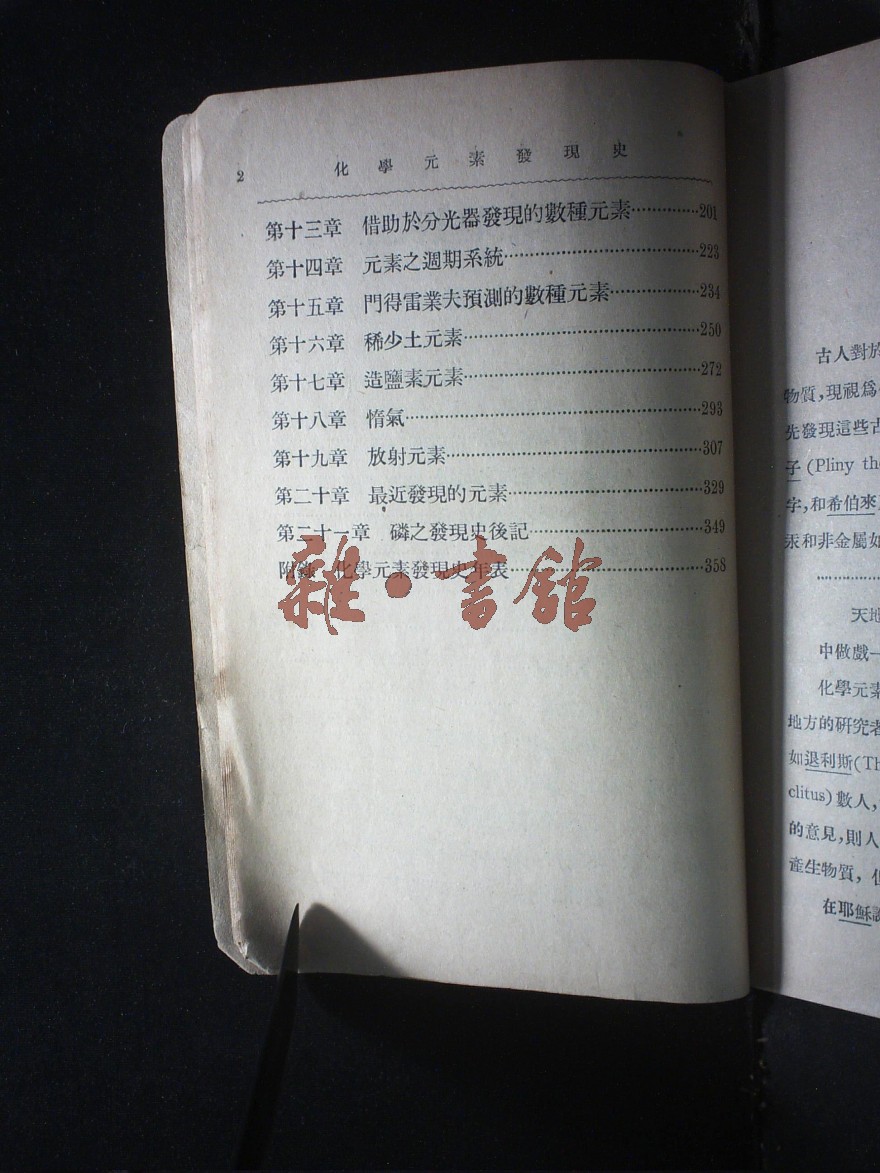 2 化學元素發現史
第十三章 借助於分光器發現的數種元素············201
第十四章 元素之週期系統············223
第十五章 門得雷業夫預測的數種元素············234
第十六章 稀少土元素············250
第十七章 造鹽素元素············272
第十八章 惰氣············293
第十九章 放射元素············307
第二十章 最近發現的元素············329
第二十一章 磷之發現史後記············349
附錄 化學元素發現史年表············358
雜·書館
古人對於
物質,現視爲
先發現這些古
子 (Pliny the
字,和希伯來
汞和非金屬如
天地
中做戲一
化學元素
地方的研究者
如退利斯(Th
clitus) 數人,
的意見,則人
產生物質,但
在耶穌